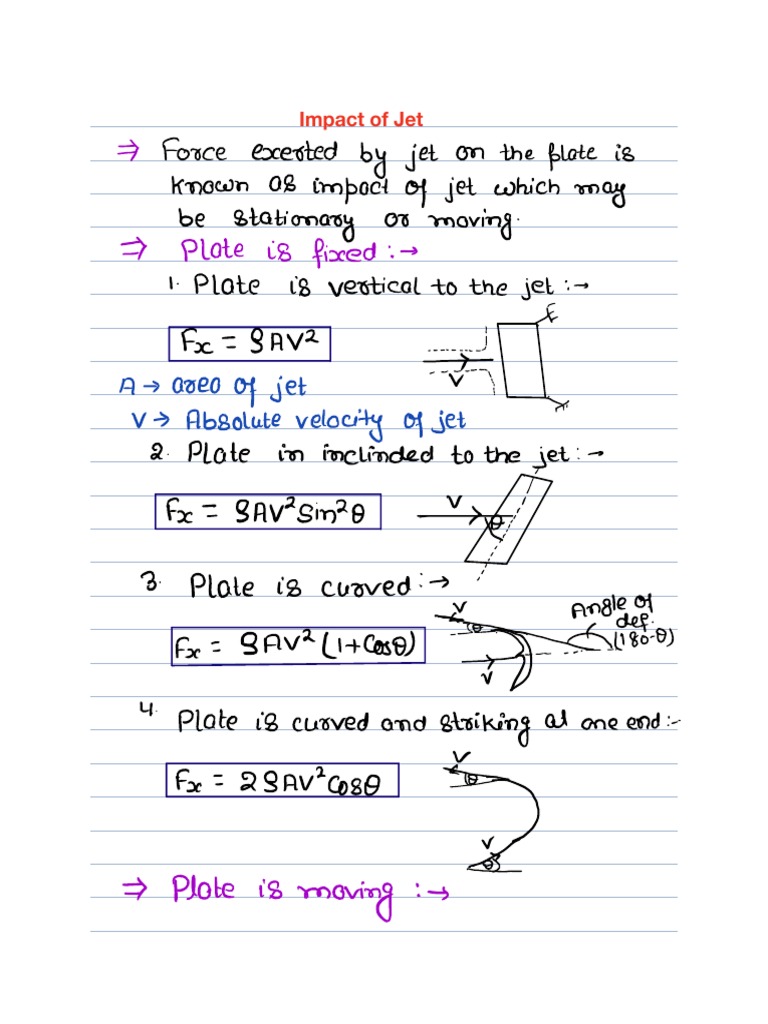 Impact of Jet
⇒ Force exerted by jet on the plate is
known as impact of jet which may
be stationary or moving.
⇒ Plate is fixed :→
1. Plate is vertical to the jet :→
Fx = ρAV²
V
A → area of jet
V → Absolute velocity of jet
2. Plate in inclinded to the jet :→
Fx = ρAV² Sin²θ
V
θ
3. Plate is curved :→
V
θ
Angle of
def.
(180-θ)
Fx = ρAV² (1+Cosθ)
V
4. Plate is curved and striking at one end :-
V
θ
Fx = 2ρAV² Cosθ
V
θ
⇒ Plate is moving :→